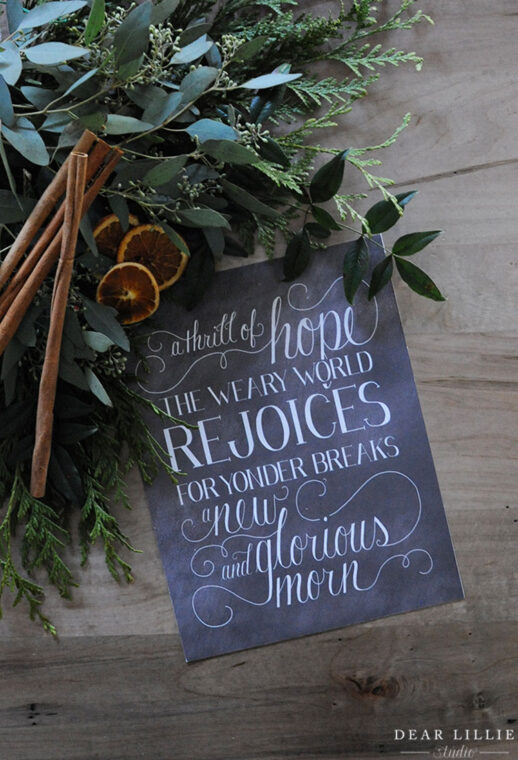 a thrill of hope
THE WEARY WORLD
REJOICES
FOR YONDER BREAKS
a new
and glorious
morn
DEAR LILLIE
studio